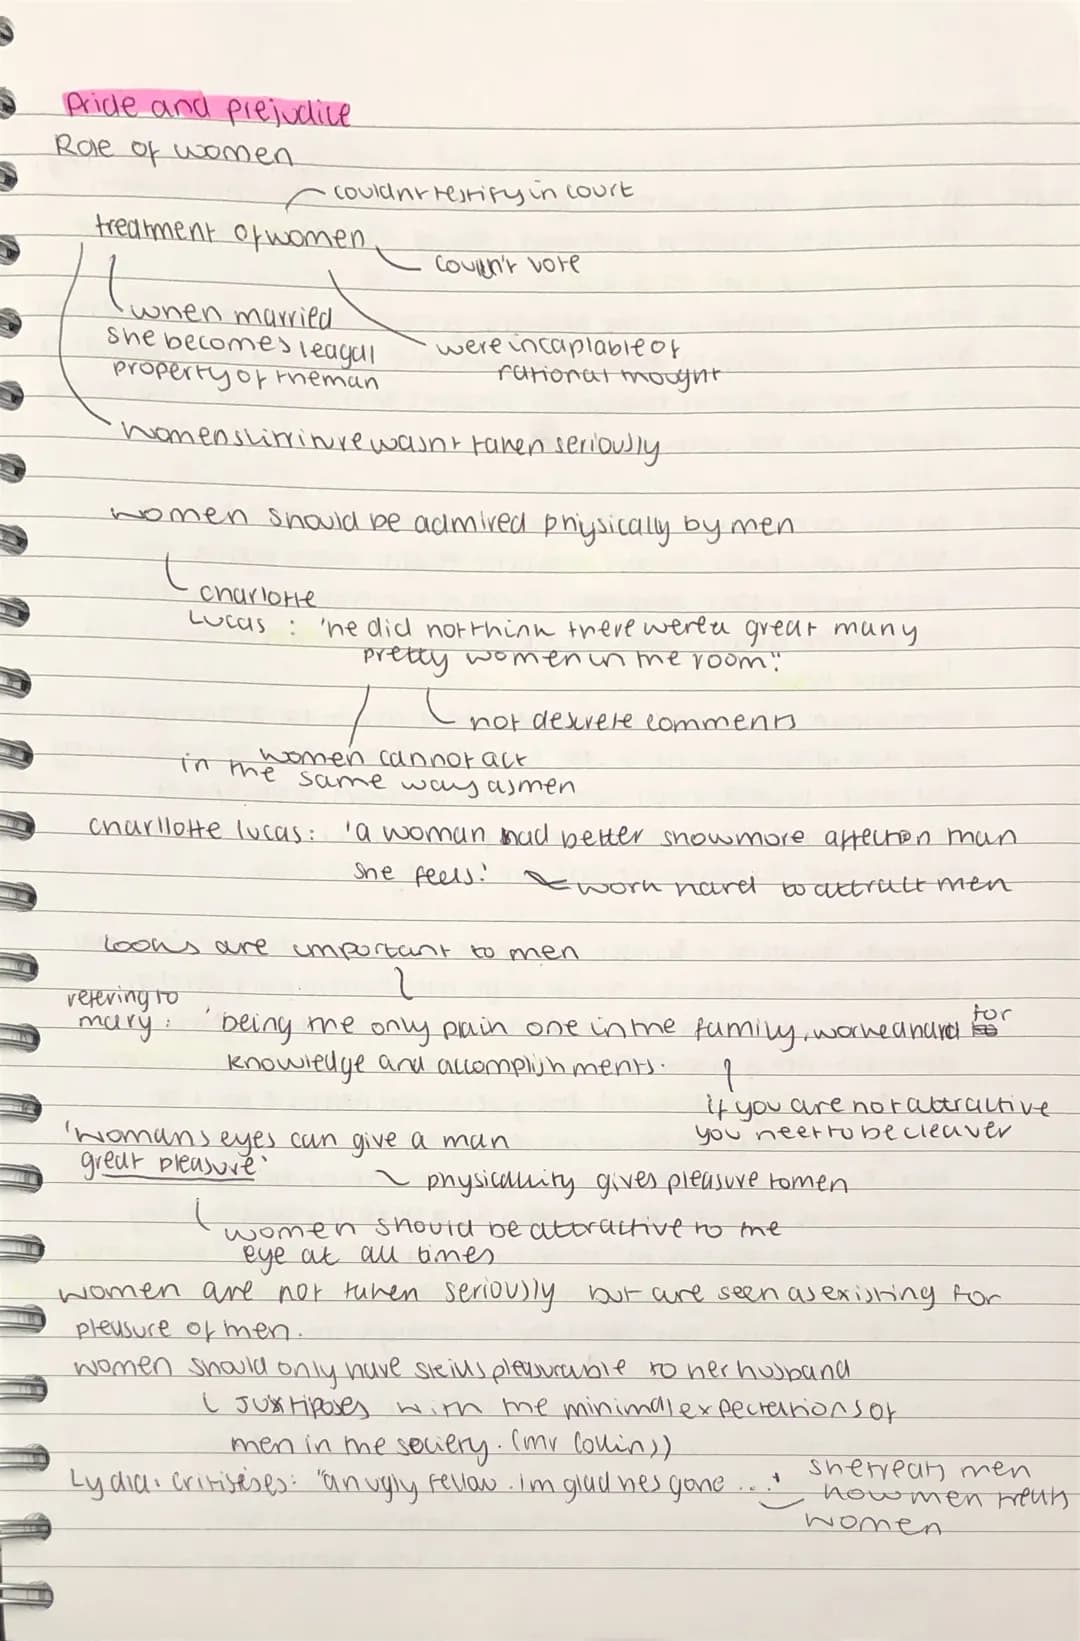 Pride and prejudice
Role of women
couldnt testify in court
treatment of women
couldn't vote
when married
she becomes leagal
property of the man
were incaplable of
rational thought
womens litrirture wasnt taken seriously
women should be admired physically by men
charlotte
Lucas : 'he did not think there were a great many
pretty women in the room."
not descrete comments
women cannot act
in the same way as men
charllotte lucas: 'a woman had better show more affection than
she feels.' work hard to attract men
looks are important to men
refering to
mary : 'being the only plain one in the family, worked hard for
knowledge and accomplishments.
if you are not attractive
you neet to be cleaver
'womans eyes can give a man
great pleasure'
physicallity gives pleasure to men
women should be attractive to the
eye at all times
women are not taken seriously but are seen as existing for
pleasure of men.
women should only have skills pleasurable to her husband
juxtiposes with the minimal expectations of
men in the society. (mr Collins)
Lydia. critiseses: "an ugly fellow. im glad hes gone ..."
she treats men
how men treats
women